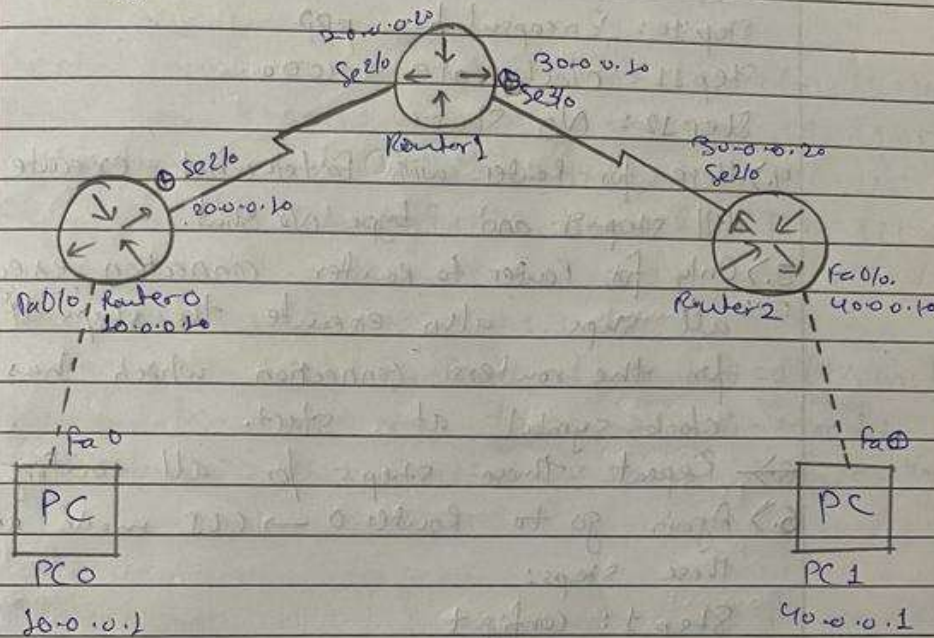 Se2/0
30.0.0.10
Se3/0
Router1
Se2/0
20.0.0.10
30.0.0.20
Se2/0
Fa0/0
Router0
10.0.0.10
Router2
Fa0/0.
40.0.0.10
Fa0
Fa0
PC
PC
PC0
PC1
10.0.0.1
40.0.0.1